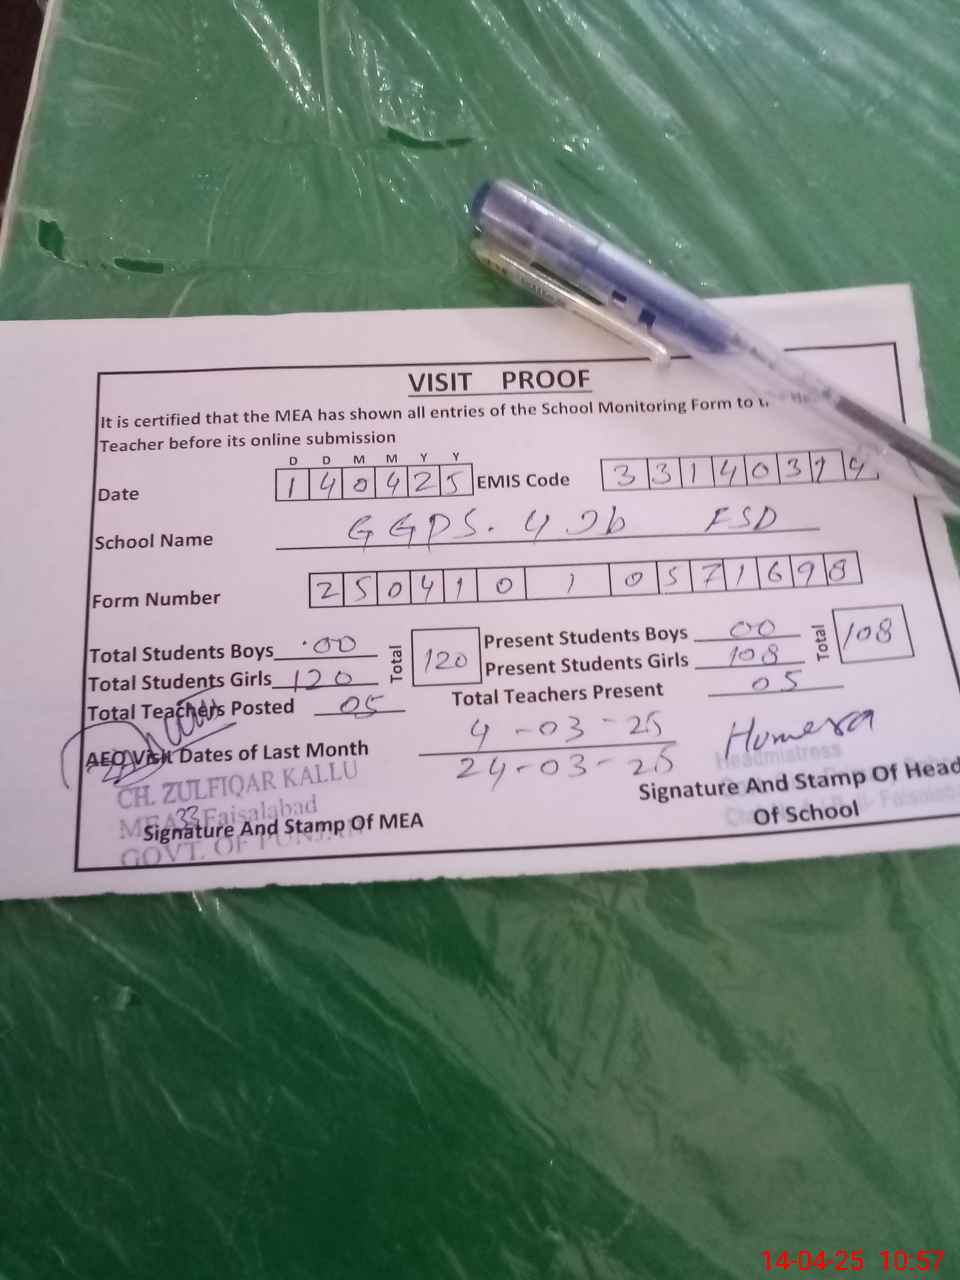 VISIT PROOF
It is certified that the MEA has shown all entries of the School Monitoring Form to the Head
Teacher before its online submission
D D M M Y Y
Date 1 4 0 4 2 5 EMIS Code 3 3 1 4 0 3 7 4
School Name GGPS. 4 Jb FSD
Form Number 2 5 0 4 1 0 1 0 5 7 1 6 9 8
Total Students Boys 00 Total 120 Present Students Boys 00 Total 108
Total Students Girls 120 Present Students Girls 108
Total Teachers Posted 05 Total Teachers Present 05
AEO Visit Dates of Last Month 4-03-25
24-03-25
Humera
Headmistress
CH. ZULFIQAR KALLU
MEA 33 Faisalabad
GOVT. OF PUNJAB
Signature And Stamp Of MEA
Signature And Stamp Of Head
Of School
14-04-25 10:57